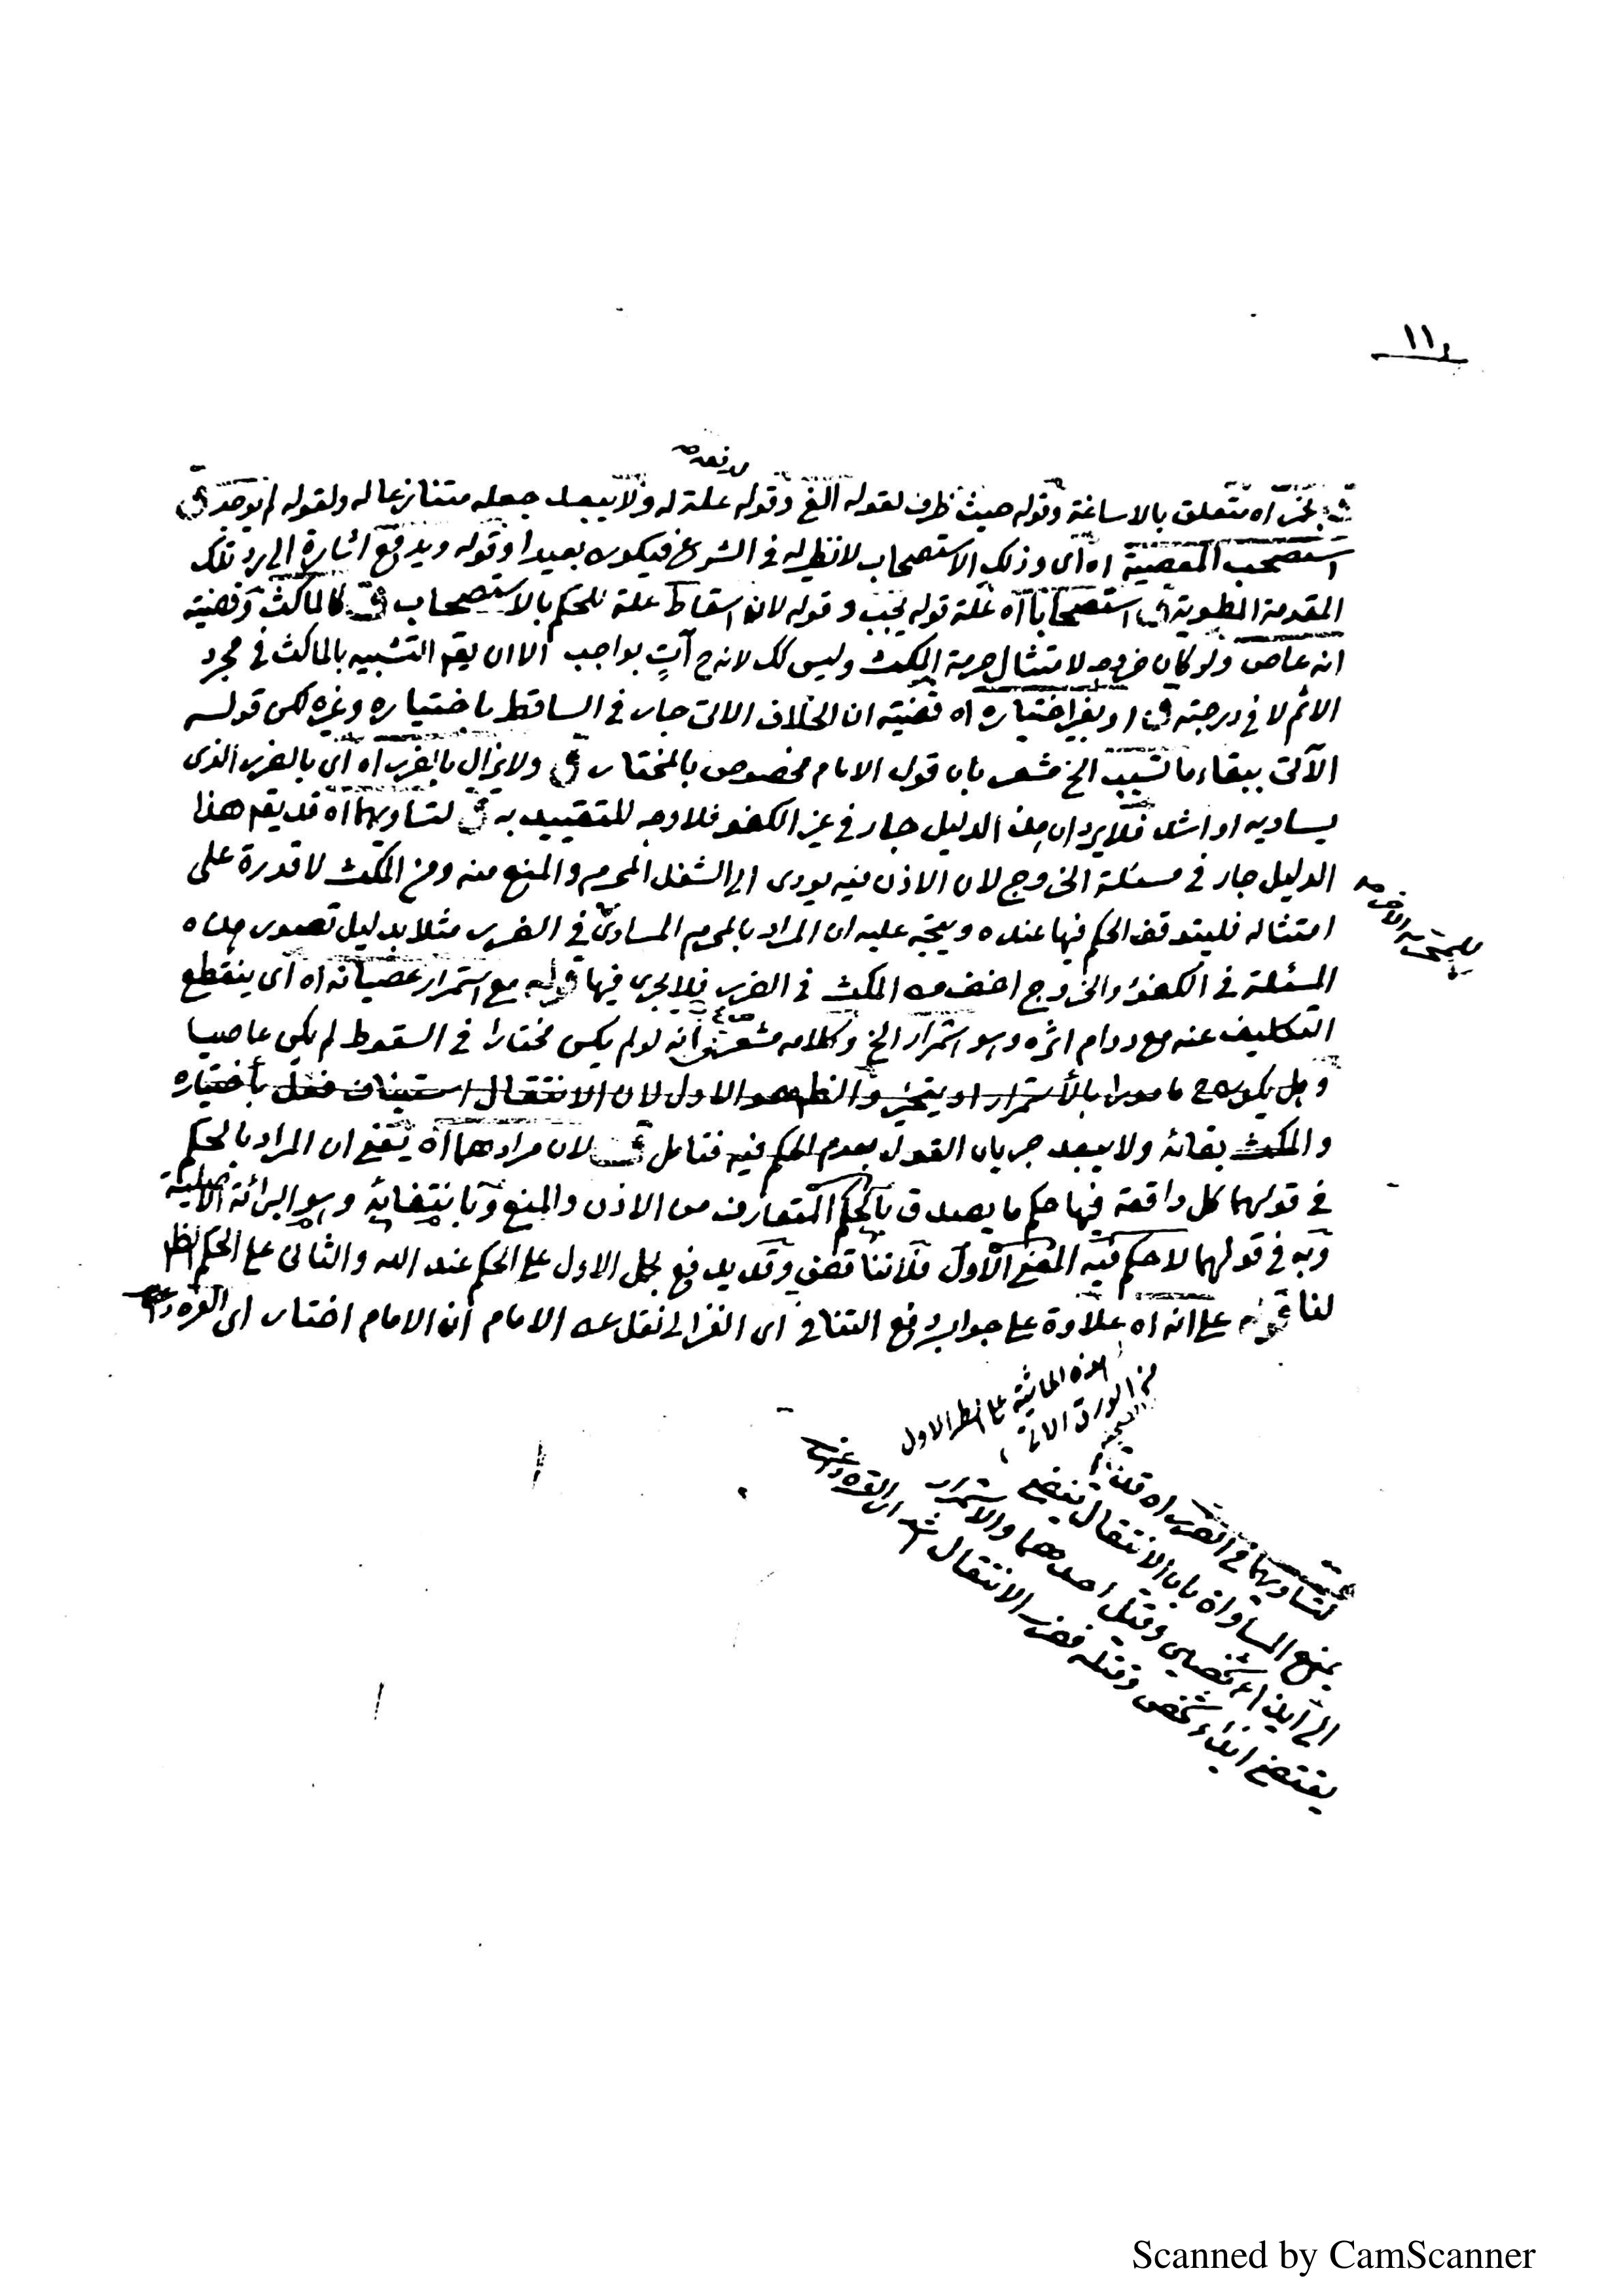 ١١
بخمر اه متعلق بالاساغة وقوله حيث ظرف لقوله الغ وقوله علة له ولا يبعد جعله متنازعا له ولقوله لم يوجد ق
استصحب المعصية اه اى وذلك الاستصحاب لا نظير له في الشرع فيكون بعيدا وقوله ويدفع اشارة الى رد تلك
المقدمة المطوية ق استصحابا اه علة قوله يجب وقوله لانه اسقاط علة للحكم بالاستصحاب ق كالماكث وقضيته
انه عاص ولو كان خروجه لامتثال حرمة المكث وليس كك لانه ح آتٍ بواجب الا ان يقم التشبيه بالماكث في مجرد
الاثم لا في درجته ق او بغير اختياره اه قضيته ان الخلاف الاتى جار في الساقط باختياره وغيره لكن قوله
الآتى ببقاء ما تسبب الخ مشعر بان قول الامام مخصوص بالمختار ق ولا يزال بالضرر اه اى بالضرر الذى
يساويه او اشد فلا يرد ان هذا الدليل جار في غير الكفو فلا وجه للتقييد به ق لتساويهما اه قد يقم هذا
الدليل جار في مسئلة الخروج لان الاذن فيه يودى الى الشغل المحرم والمنع منه ومن المكث لا قدرة على
امتثاله فليتوقف الحكم فيها عنده ويتجه عليه ان المراد بالمحرم المساوى في الضرر مثلا بدليل تصوير هذه
المسئلة في الكفو والخروج اخف من المكث في الضرر فلا يجرى فيها قوله مع استمرار عصيانه اه اى ينقطع
التكليف عنه مع دوام اثره وهو استمرار الخ وكلامه مشعر انه لو لم يكن مختارا في السقوط لم يكن عاصيا
وهل يكون ح مامورا بالاستمرار او يتخير والظ هو الاول لان الانتقال استيناف فعل باختياره
والمكث بقائه ولا يبعد جريان القول بعدم الحكم فيه فتامل ق لان مرادهما اه يعنى ان المراد بالحكم
في قولهما كل واقعة فيها حكم ما يصدق بالحكم المتعارف من الاذن والمنع وبانتفائه وهو البرائة الاصلية
وبه في قولهما لا حكم فيه المعنى الاول فلا تناقض وقد يدفع بحمل الاول على الحكم عند الله والثانى على الحكم الظ
لنا قوله على انه اه علاوة على جواب دفع التنافي اى الغزالى نقل عن الامام ان الامام اختار اى
هذه الحاشية على السطر الاول
من الورق الاتى
لتساويهما في الضرر اه قد
يمنع المساواة بان الانتقال يفضى
الى ايذاء شخصين وقتل احدهما والاستمرار
يقتضى ايذاء شخص وقتله فضرر الانتقال اشد
Scanned by CamScanner